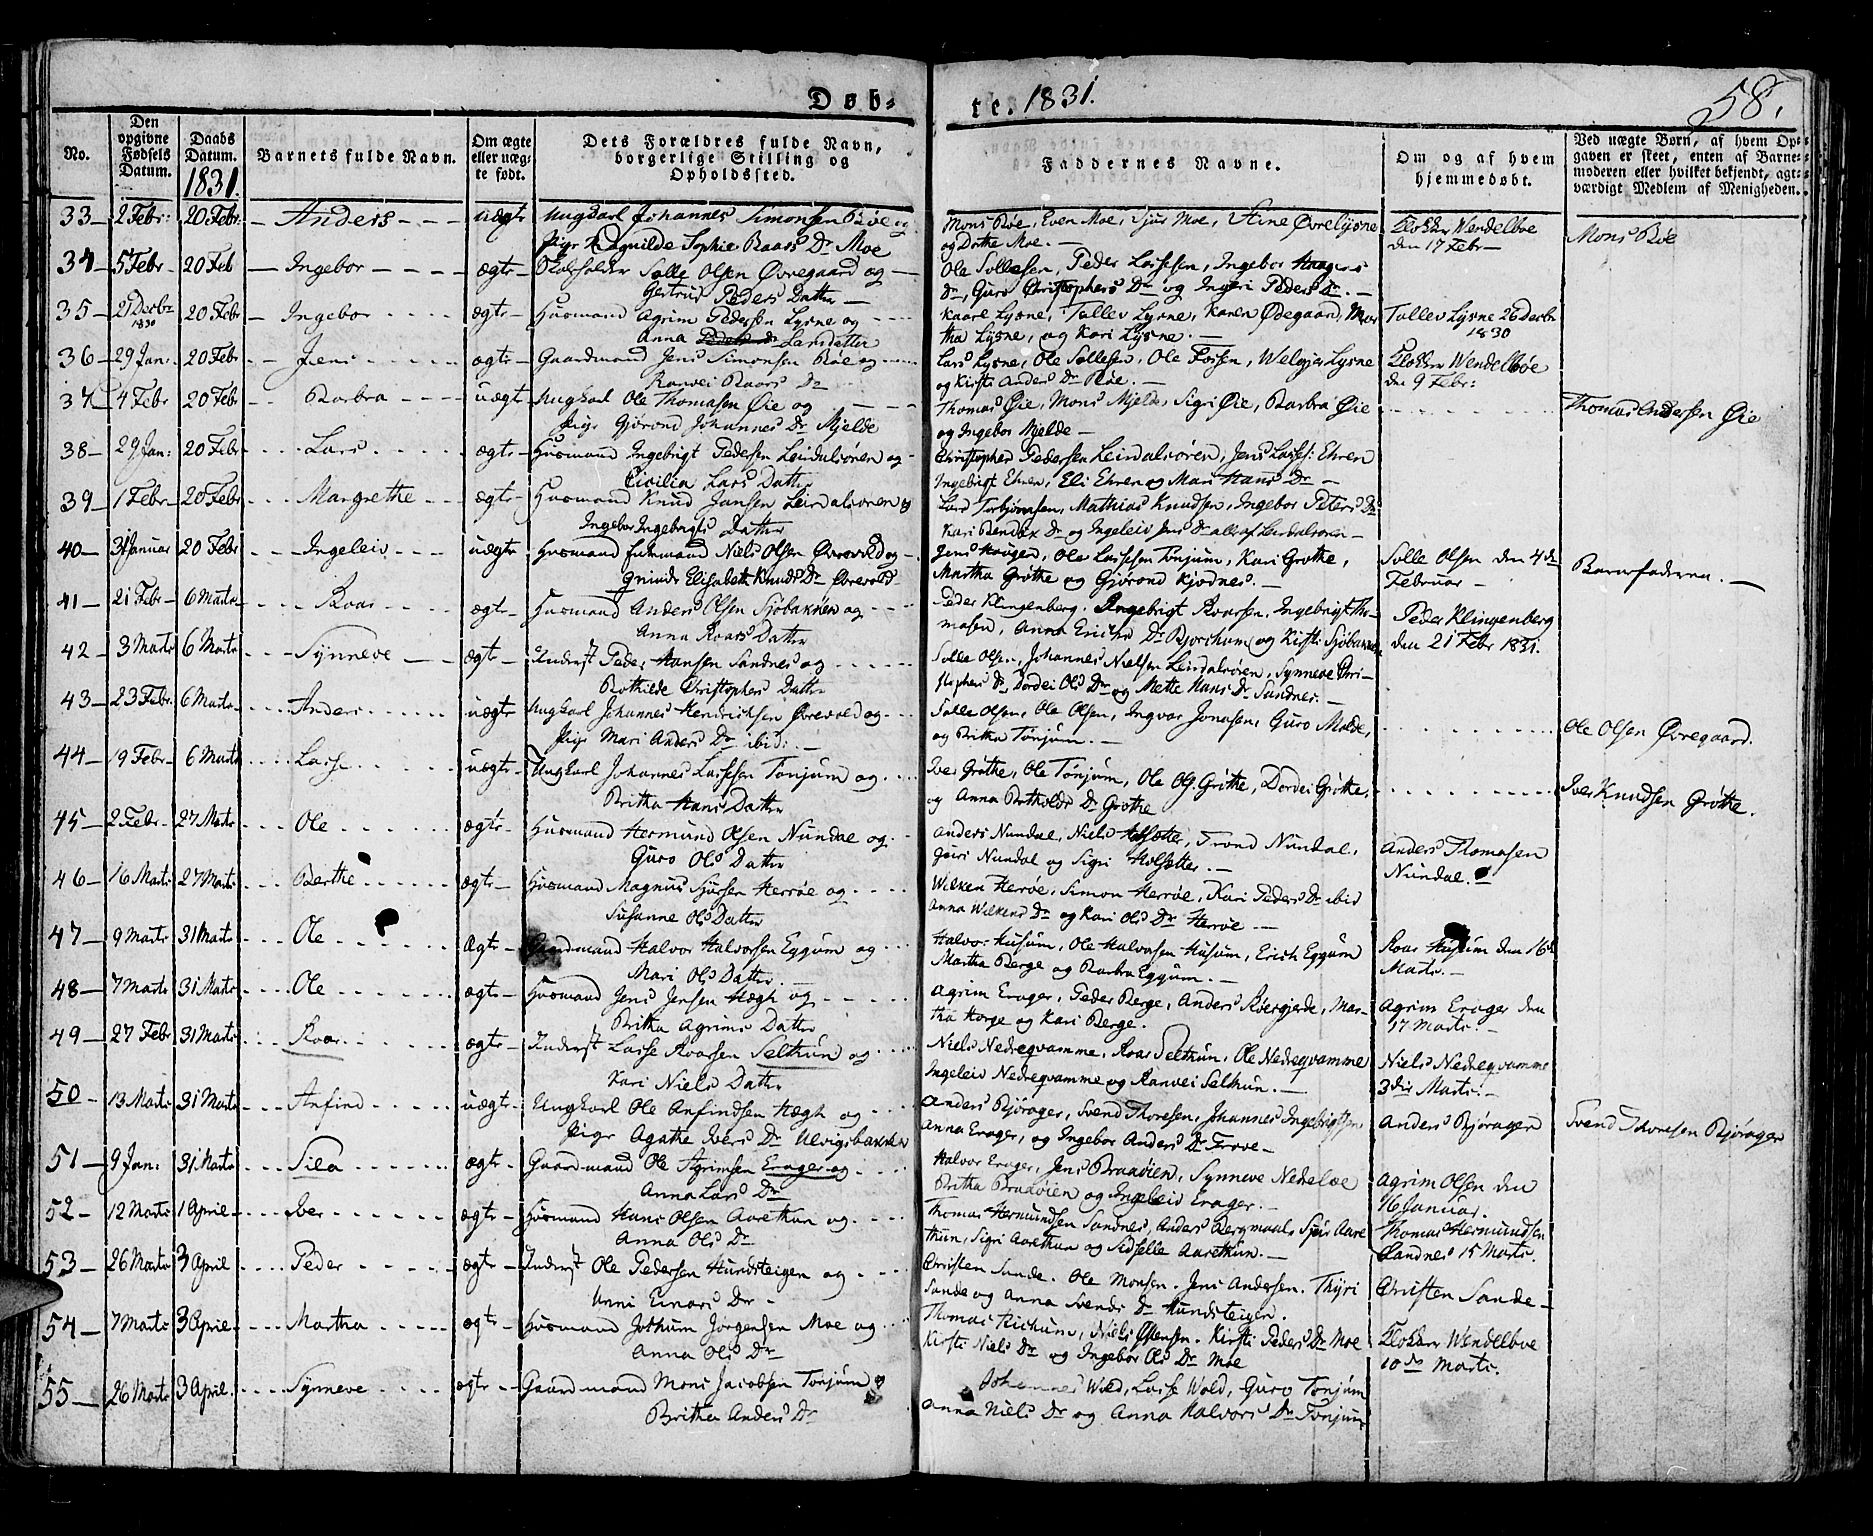 Døb-
te. 1831.
58.
No.
Den opgivne Fødsels Datum.
Daabs Datum. 1831.
Barnets fulde Navn.
Om ægte eller uæg-te født.
Dets Forældres fulde Navn, borgerlige Stilling og Opholdssted.
Faddernes Navne.
Om og af hvem hjemmedøbt.
Ved uægte Børn, af hvem Op-gaven er skeet, enten af Barne-moderen eller hvilket bekjendt, agt-værdigt Medlem af Menigheden.
33 - 2 Febr: 20 Febr: - Anders - - - uægte Ungkarl Johannes Simonsen Røe og Mons Røe, Even Moe, Sjur Moe, Stine Øvrelysne Klokker Wendelboe Mons Røe
Pige Ragnilde Sophie Roars Dr Moe og Dothe Moe. - den 17 Febr -
34 - 5 Febr - 20 Feb - Ingebor - - - - ægte - Salle Olsen Øvregaard og - Ole Sallesen, Peder Lassesen, Ingebor
Gertrud Peders Datter - Dr, Guro Christophers Dr og Ingeri Peders Dr. -
35 - 21 Decbr 1830 20 Febr - Ingebor . . . . ægte - Huusmand Agrim Pedersen Lysne og - Kaare Lysne, Tollev Lysne, Karen Ødegaard, Mar- Tollev Lysne 26 Decbr
Anna Larsdatter tha Lysne, og Kari Lysne. - 1830
36 - 29 Jan: 20 Febr - Jens - - - - ægte - Gaardmand Jens Simonsen Røe og - Lars Lysne, Ole Sallesen, Ole Fossen, Lysne Klokker Wendelboe
Ranvei Roars Dr og Kirsti Anders Dr Røe. - den 9 Febr:
37 - 4 Febr 20 Febr - - Barbra - - - - uægte - Ungkarl Ole Thomasen Øie og - Thomas Øie, Mons Mjelde, Sigri Øie, Barbra Øie Thomas Andersen Øie
Pige Gjørond Johannes Dr Mjelde og Ingebor Mjelde -
38 - 29 Jan: 20 Febr . . . Lars . . . . ægte - Huusmand Ingebrigt Pedersen Leirdalsøren og - Christopher Pedersen Leirdalsøren, Jens Lasses: Ehren
Cicilia Lars Datter Ingebrigt Ehren, Eli Ehren og Mari Hans Dr -
39 - 1 Febr - 20 Febr - - - Margrethe - - - ægte - Huusmand Knud Jansen Leirdalsøren og Lars Torbjørnsen, Mathias Knudsen, Ingebor Peters Dr
Ingebor Ingebrigts Datter Kari Bendix Dr og Ingeleiv Jens Dr alle af Leirdalsøren -
40 - 31 Januar 20 Febr - - - Ingeleiv - - - uægte - Huusmand Enkemand Niels Olsen Øvrevold og - Jens Hougen, Ole Lassesen Tønjum, Kari Grøthe, Salle Olsen den 4de Barnefaderen. -
Qvinde Elisabeth Knuds Dr Øvrevold - Martha Grøthe og Gjørond Kjødnes. - Februar -
41 - 21 Febr - 6 Marts - - - Roar - - - - ægte - Huusmand Anders Olsen Sjøbakken og - Peder Klingenberg, Ingebrigt Roarsen, Ingebrigt Tho- Peder Klingenberg
Anna Roars Datter masen, Anna Erichs Dr Bjørchum og Kirsti Sjøbakken den 21 Febr 1831.
42 - 3 Marts 6 Marts - - - Synneve - - ægte - Inderst Peder Hansen Sandnes og - Salle Olsen, Johannes Nielsen Leirdalsøren, Synneve Chri-
Bothilde Christophers Datter stophers Dr, Dordei Ols Dr og Mette Hans Dr Sandnes. -
43 - 23 Febr. 6 Marts - - Anders . . . . uægte Ungkarl Johannes Hendrichsen Øvrevold og - Salle Olsen, Ole Olsen, Ingvar Jonasen, Guro Molde, Ole Olsen Øvregaard.
Pige Mari Anders Dr ibid: - og Britha Tønjum. -
44 - 19 Febr - 6 Marts . . . Lasse . . . . uægte - Ungkarl Johannes Lassesen Tønjum og . . . Iver Grøthe, Ole Tønjum, Ole Ols: Grøthe, Dordei Grøthe, Iver Knudsen Grøthe.
Britha Hans Datter og Anna Botholds Dr Grøthe
45 - 2 Febr - 27 Marts . . . Ole . . . . . ægte - Huusmand Hermund Olsen Nundal og . Anders Nundal, Niels Holsætter, Trond Nundal, Anders Thomasen
Guro Ols Datter Guri Nundal og Sigri Holsætter. - Nundal. -
46 - 16 Marts 27 Marts . . . Berthe . . . ægte - Huusmand Magnus Sjursen Herrøe og . . . . Wilken Herrøe, Simon Herrøe, Kari Peders Dr ibid
Susanne Ols Datter Anna Wilkens Dr og Kari Ols Dr Herrøe -
47 - 9 Marts 31 Marts . . . Ole . . . . . ægte - Gaardmand Halvor Halvorsen Eggum og . . . Halvor Husum, Ole Halvorsen Husum, Erich Eggum Roar Husum den 16de
Mari Ols Datter. Martha Berge og Barbra Eggum. - Marts. -
48 - 7 Marts 31 Marts . . . Ole . . . . . ægte - Huusmand Jens Jensen Hægh og . . . . Agrim Erager, Peder Berge, Anders Koergjerde, Mar- Agrim Erager den
Britha Agrims Datter tha Horge og Kari Berge. 17 Marts. -
49 - 27 Febr 31 Marts . . . Roar . . . . . ægte - Inderst Lasse Roarsen Selthun og . . . Niels Nedreqvamme, Roar Selthun, Ole Nedreqvamme Niels Nedreqvamme
Kari Niels Datter Ingeleiv Nedreqvamme og Ranvei Selthun. - 3die Marts. -
50 - 13 Marts 31 Marts - - - Anfind . . . . uægte - Ungkarl Ole Anfindsen Hægh og . . . Anders Bjørager, Svend Thoresen, Johannes Ingebrigtsen Anders Bjørager Svend Thoresen Bjørager
Pige Agathe Ivers Dr Ulvigsbakken Anna Erager, og Ingebor Anders Dr Frove -
51 - 9 Jan: 31 Marts . . . Sila . . . . . ægte - Gaardmand Ole Agrimsen Erager og . . . Halvor Erager, Jens Braaøien, Synneve Nedreløe Agrim Olsen den
Anna Lars Dr Britha Braaøien og Ingeleid Erager. - 16 Januar.
52 - 12 Marts 1 April - . . . Iver . . . . . ægte - Huusmand Hans Olsen Aarethun og . . . Thomas Hermundsen Sandnes, Anders Bergmaal, Sjur Aare- Thomas Hermundsen
Anna Ols Dr thun, Sigri Aarethun og Sidselle Aarethun. - Sandnes 15 Marts.
53 - 26 Marts 3 April . . . . Peder . . . . ægte - Inderst Ole Pedersen Hundsteigen og . . . Christen Sande, Ole Monsen, Jens Andersen, Thyri Christen Sande -
Unni Einars Dr - Sande og Anna Svends Dr Hundsteigen.
54 - 7 Marts 3 April - . . . Martha . . . . ægte - Huusmand Jothum Jørgensen Moe og . . . Thomas Richum, Niels Ostensen, Kirsti Peders Dr Moe Klokker Wendelboe
Anna Ols Dr Kirsti Niels Dr og Ingebor Ols Dr Moe 10de Marts.
55 - 26 Marts 3 April . . . . Synneve . . . . ægte - Gaardmand Mons Jacobsen Tønjum og Johannes Wold, Lasse Wold, Guro Tønjum
Britha Anders Dr Anna Niels Dr og Anna Halvors Dr Tønjum